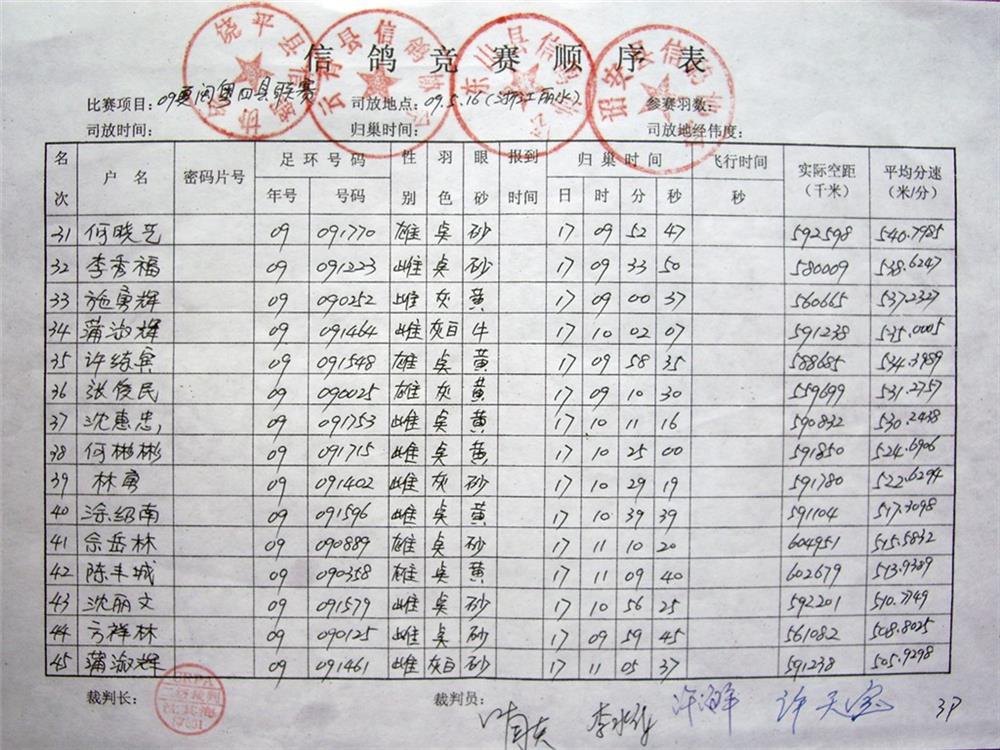 信鸽竞赛顺序表
比赛项目: 09 闽粤四县联赛 司放地点: 09.5.16 (浙江丽水) 参赛羽数:
司放时间: 归巢时间: 司放地经伟度:
名次 户名 密码片号 足环号码 性别 羽色 眼砂 报到时间 归巢时间 飞行时间 实际空距(千米) 平均分速(米/分)
年号 号码 日 时 分 秒 秒
31 何晓艺 09 091770 雄 桌 砂 17 09 52 47 592598 540.7985
32 李秀福 09 091223 雌 桌 砂 17 09 33 50 580009 538.6247
33 施勇辉 09 090252 雌 灰 黄 17 09 00 37 560665 537.2327
34 蒲淑辉 09 091464 雌 灰白 牛 17 10 02 07 591238 535.0005
35 许 09 091548 雄 桌 黄 17 09 58 35 588685 534.3989
36 张俊民 09 090025 雄 灰 黄 17 09 10 30 559699 531.2757
37 沈惠忠 09 091753 雌 桌 黄 17 10 11 16 590832 530.2438
38 何彬彬 09 091715 雌 桌 黄 17 10 25 00 591850 524.6906
39 林勇 09 091402 雌 灰 砂 17 10 29 19 591780 522.6294
40 涂绍南 09 091596 雌 桌 黄 17 10 39 39 591104 517.3098
41 佘岳林 09 090889 雄 桌 砂 17 11 10 20 604951 515.5832
42 陈丰城 09 090358 雄 桌 黄 17 11 09 40 602679 513.9389
43 沈丽文 09 091579 雌 桌 砂 17 10 56 25 592201 510.7749
44 方祥林 09 090125 雌 桌 砂 17 09 59 45 561082 508.8025
45 蒲淑辉 09 091461 雌 灰白 砂 17 11 05 37 591238 505.9298
裁判长: 裁判员: 许天宝 3P